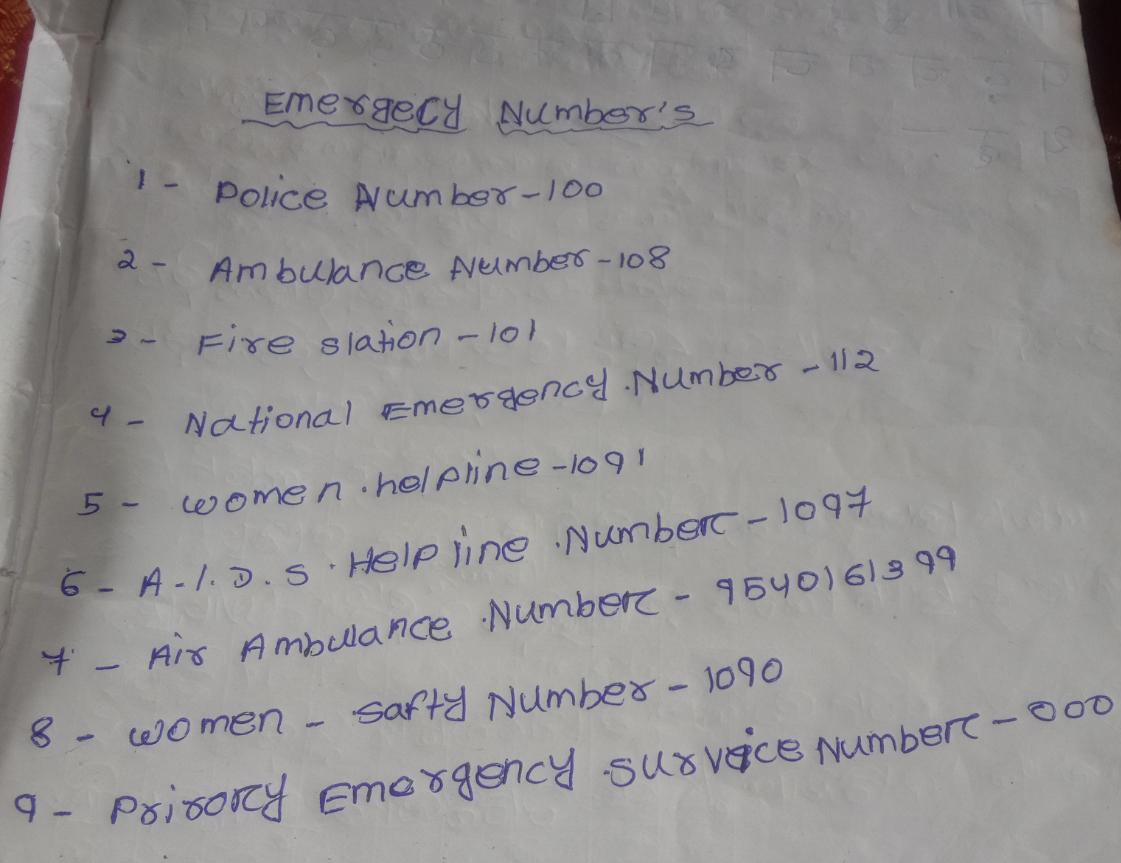 Emergecy Number's
1 - Police Number - 100
2 - Ambulance Number - 108
3 - Fire station - 101
4 - National Emergency Number - 112
5 - women helpline - 1091
6 - A.I.D.S. Help line Number - 1097
7 - Air Ambulance Number - 9540161399
8 - women - safty Number - 1090
9 - Prirory Emergency survice Number - 000